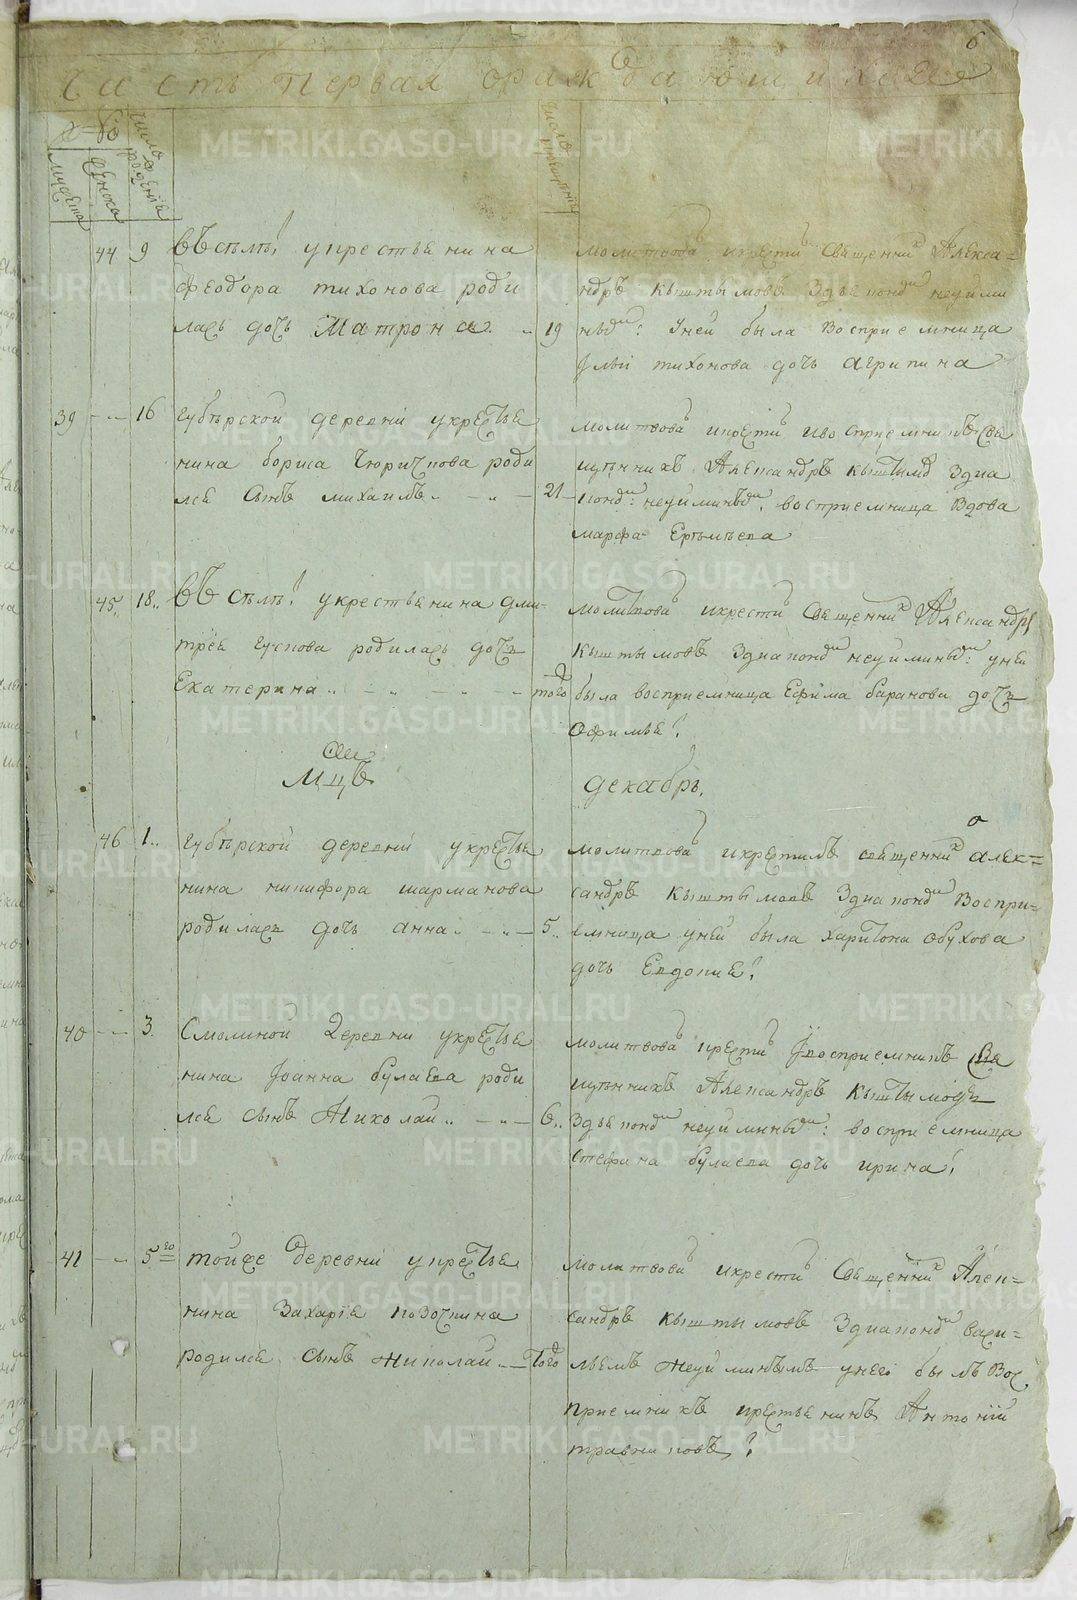 6
Часть первая ораждающихся
Число рождения
мужеска
женска
Число крещения
44 9 Въ селѣ укрестьянина
Феодора тихонова роди
лась дочь Матрона 19
молитвовалъ икрестилъ Священникъ Алекса=
ндръ Кыштымовъ Здьякондм неуйми
нымъ: Уней была Восприемница
Ильи тихонова дочь агрипина
39 16 губѣрской деревни укрестья
нина бориса роди
лся сынъ михаилъ 21
молитвовалъ икрестилъ ивосприемникъ Свя
щенникъ Александръ Кыштымовъ Здиа
кондм: неуйминымъ. восприемница Вдова
марфа Ерѣмѣева
45. 18.. Въ селѣ укрестьянина дми-
трея гускова родилась дочь
Екатерина того
молитвовалъ икрестилъ Священникъ Александръ
Кыштымовъ Здиакондм неуйминымъ: уней
была восприемница Ефима баранова дочь
Офимья
Мцъ Декабрь.
46 1.. губѣрской деревни укрестья
нина никифора шарманова
родилась дочь анна 5..
молитвовалъ икрестилъ священникъ алек=
сандръ Кыштымовъ Здиакондм Воспри=
емница уней была харитона обухова
дочь Евдокия
40 3. Смолиной Деревни укрестья
нина Иоанна булаева роди
лся сынъ Николай 6..
молитвовалъ икрестилъ Ивосприемникъ Свя
щенникъ Александръ Кыштымовъ
Здьякондм неуйминымъ: восприемница
Стефана булаева дочь ирина
41 5го тойже Деревни укрестья
нина Захарие козочкина
родился сынъ николай Того
молитвовалъ икрестилъ Священникъ Алек=
сандръ Кыштымовъ Здиакондм Васи=
льемъ Неуйминымъ унего былъ Вос
приемникъ крестьянинъ Антоній
травниковъ
METRIKI.GASO-URAL.RU